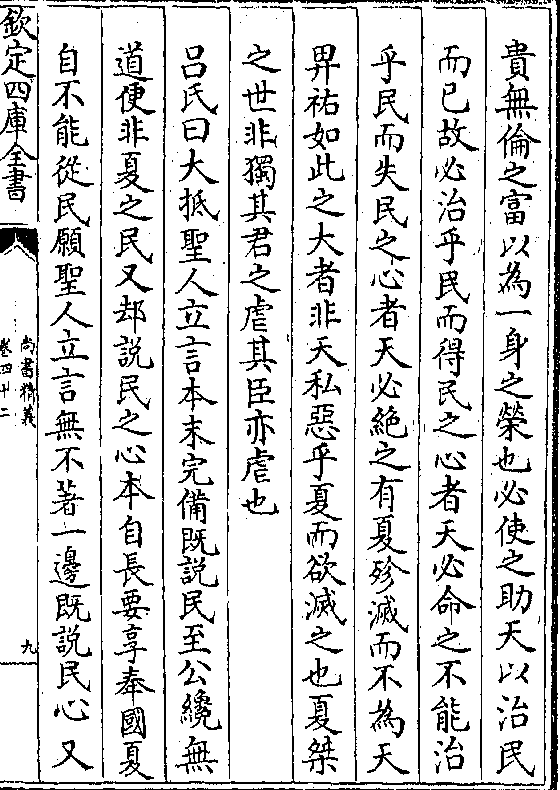 貴無倫之富以為一身之榮也必使之助天以治民
而已故必治乎民而得民之心者天必命之不能治
乎民而失民之心者天必絶之有夏殄滅而不為天
畀祐如此之大者非天私惡乎夏而欲滅之也夏桀
之世非獨其君之虐其臣亦虐也
呂氏曰大抵聖人立言本末完備既説民至公纔無
道便非夏之民又却説民之心本自長要享奉國夏
自不能從民願聖人立言無不著一邊既説民心又
欽定四庫全書
尚書精義
卷四十二
九